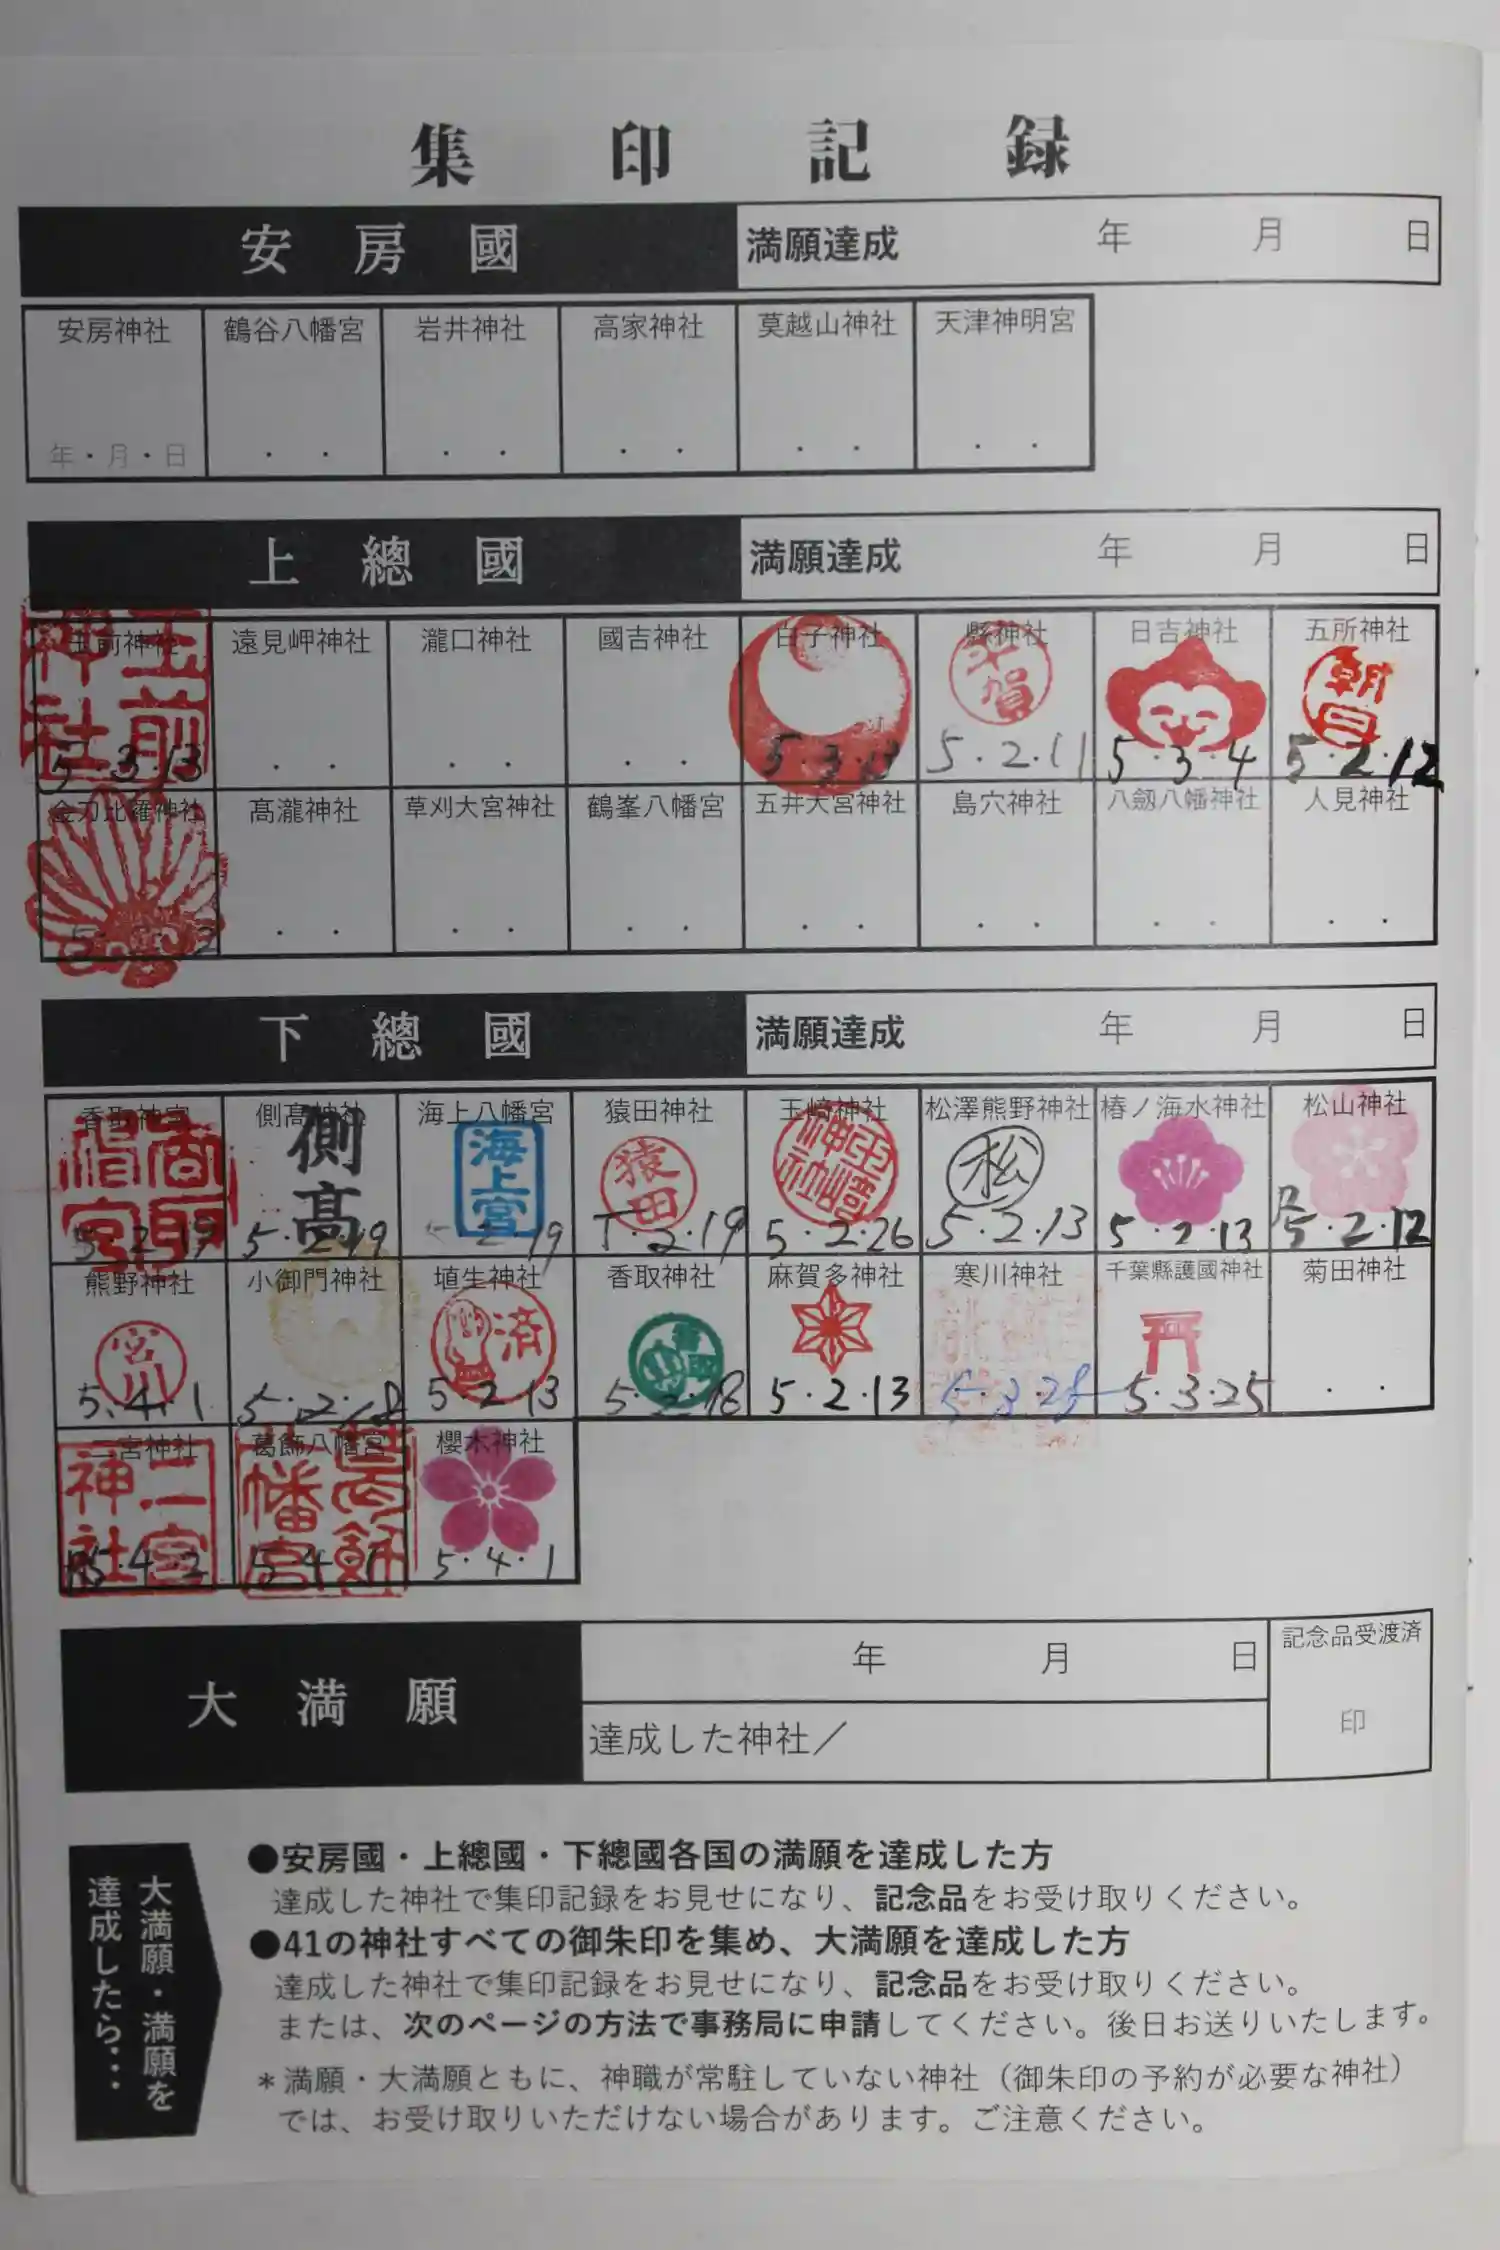 集印記録
安房國 満願達成 年 月 日
安房神社 鶴谷八幡宮 岩井神社 高家神社 莫越山神社 天津神明宮
年・月・日 ・ ・ ・ ・ ・ ・ ・ ・ ・ ・
上總國 満願達成 年 月 日
玉前神社 遠見岬神社 瀧口神社 國吉神社 白子神社 縣神社 日吉神社 五所神社
玉前神社 平賀 朝日
5・3・13 ・ ・ ・ ・ ・ ・ 5・2・11 5・3・4 5・2・12
金刀比羅神社 高瀧神社 草刈大宮神社 鶴峯八幡宮 五井大宮神社 島穴神社 八剱八幡神社 人見神社
・ ・ ・ ・ ・ ・ ・ ・ ・ ・ ・ ・ ・ ・
下總國 満願達成 年 月 日
香取神宮 側髙神社 海上八幡宮 猿田神社 玉﨑神社 松澤熊野神社 椿ノ海水神社 松山神社
香取神宮 側髙 海上宮 猿田 松
5・2・19 5・2・19 5・2・19 5・2・19 5・2・26 5・2・13 5・2・13 R5・2・12
熊野神社 小御門神社 埴生神社 香取神社 麻賀多神社 寒川神社 千葉縣護國神社 菊田神社
宮川 済 香取
5・4・1 5・2・18 5・2・13 5・2・18 5・2・13 5・3・25 5・3・25 ・ ・
二宮神社 葛飾八幡宮 櫻木神社
二宮神社 葛飾八幡宮
R5・4・2 5・4・1 5・4・1
大満願 年 月 日 記念品受渡済
達成した神社／ 印
大満願・満願を
達成したら…
●安房國・上總國・下總國各国の満願を達成した方
達成した神社で集印記録をお見せになり、記念品をお受け取りください。
●41の神社すべての御朱印を集め、大満願を達成した方
達成した神社で集印記録をお見せになり、記念品をお受け取りください。
または、次のページの方法で事務局に申請してください。後日お送りいたします。
＊満願・大満願ともに、神職が常駐していない神社（御朱印の予約が必要な神社）
では、お受け取りいただけない場合があります。ご注意ください。